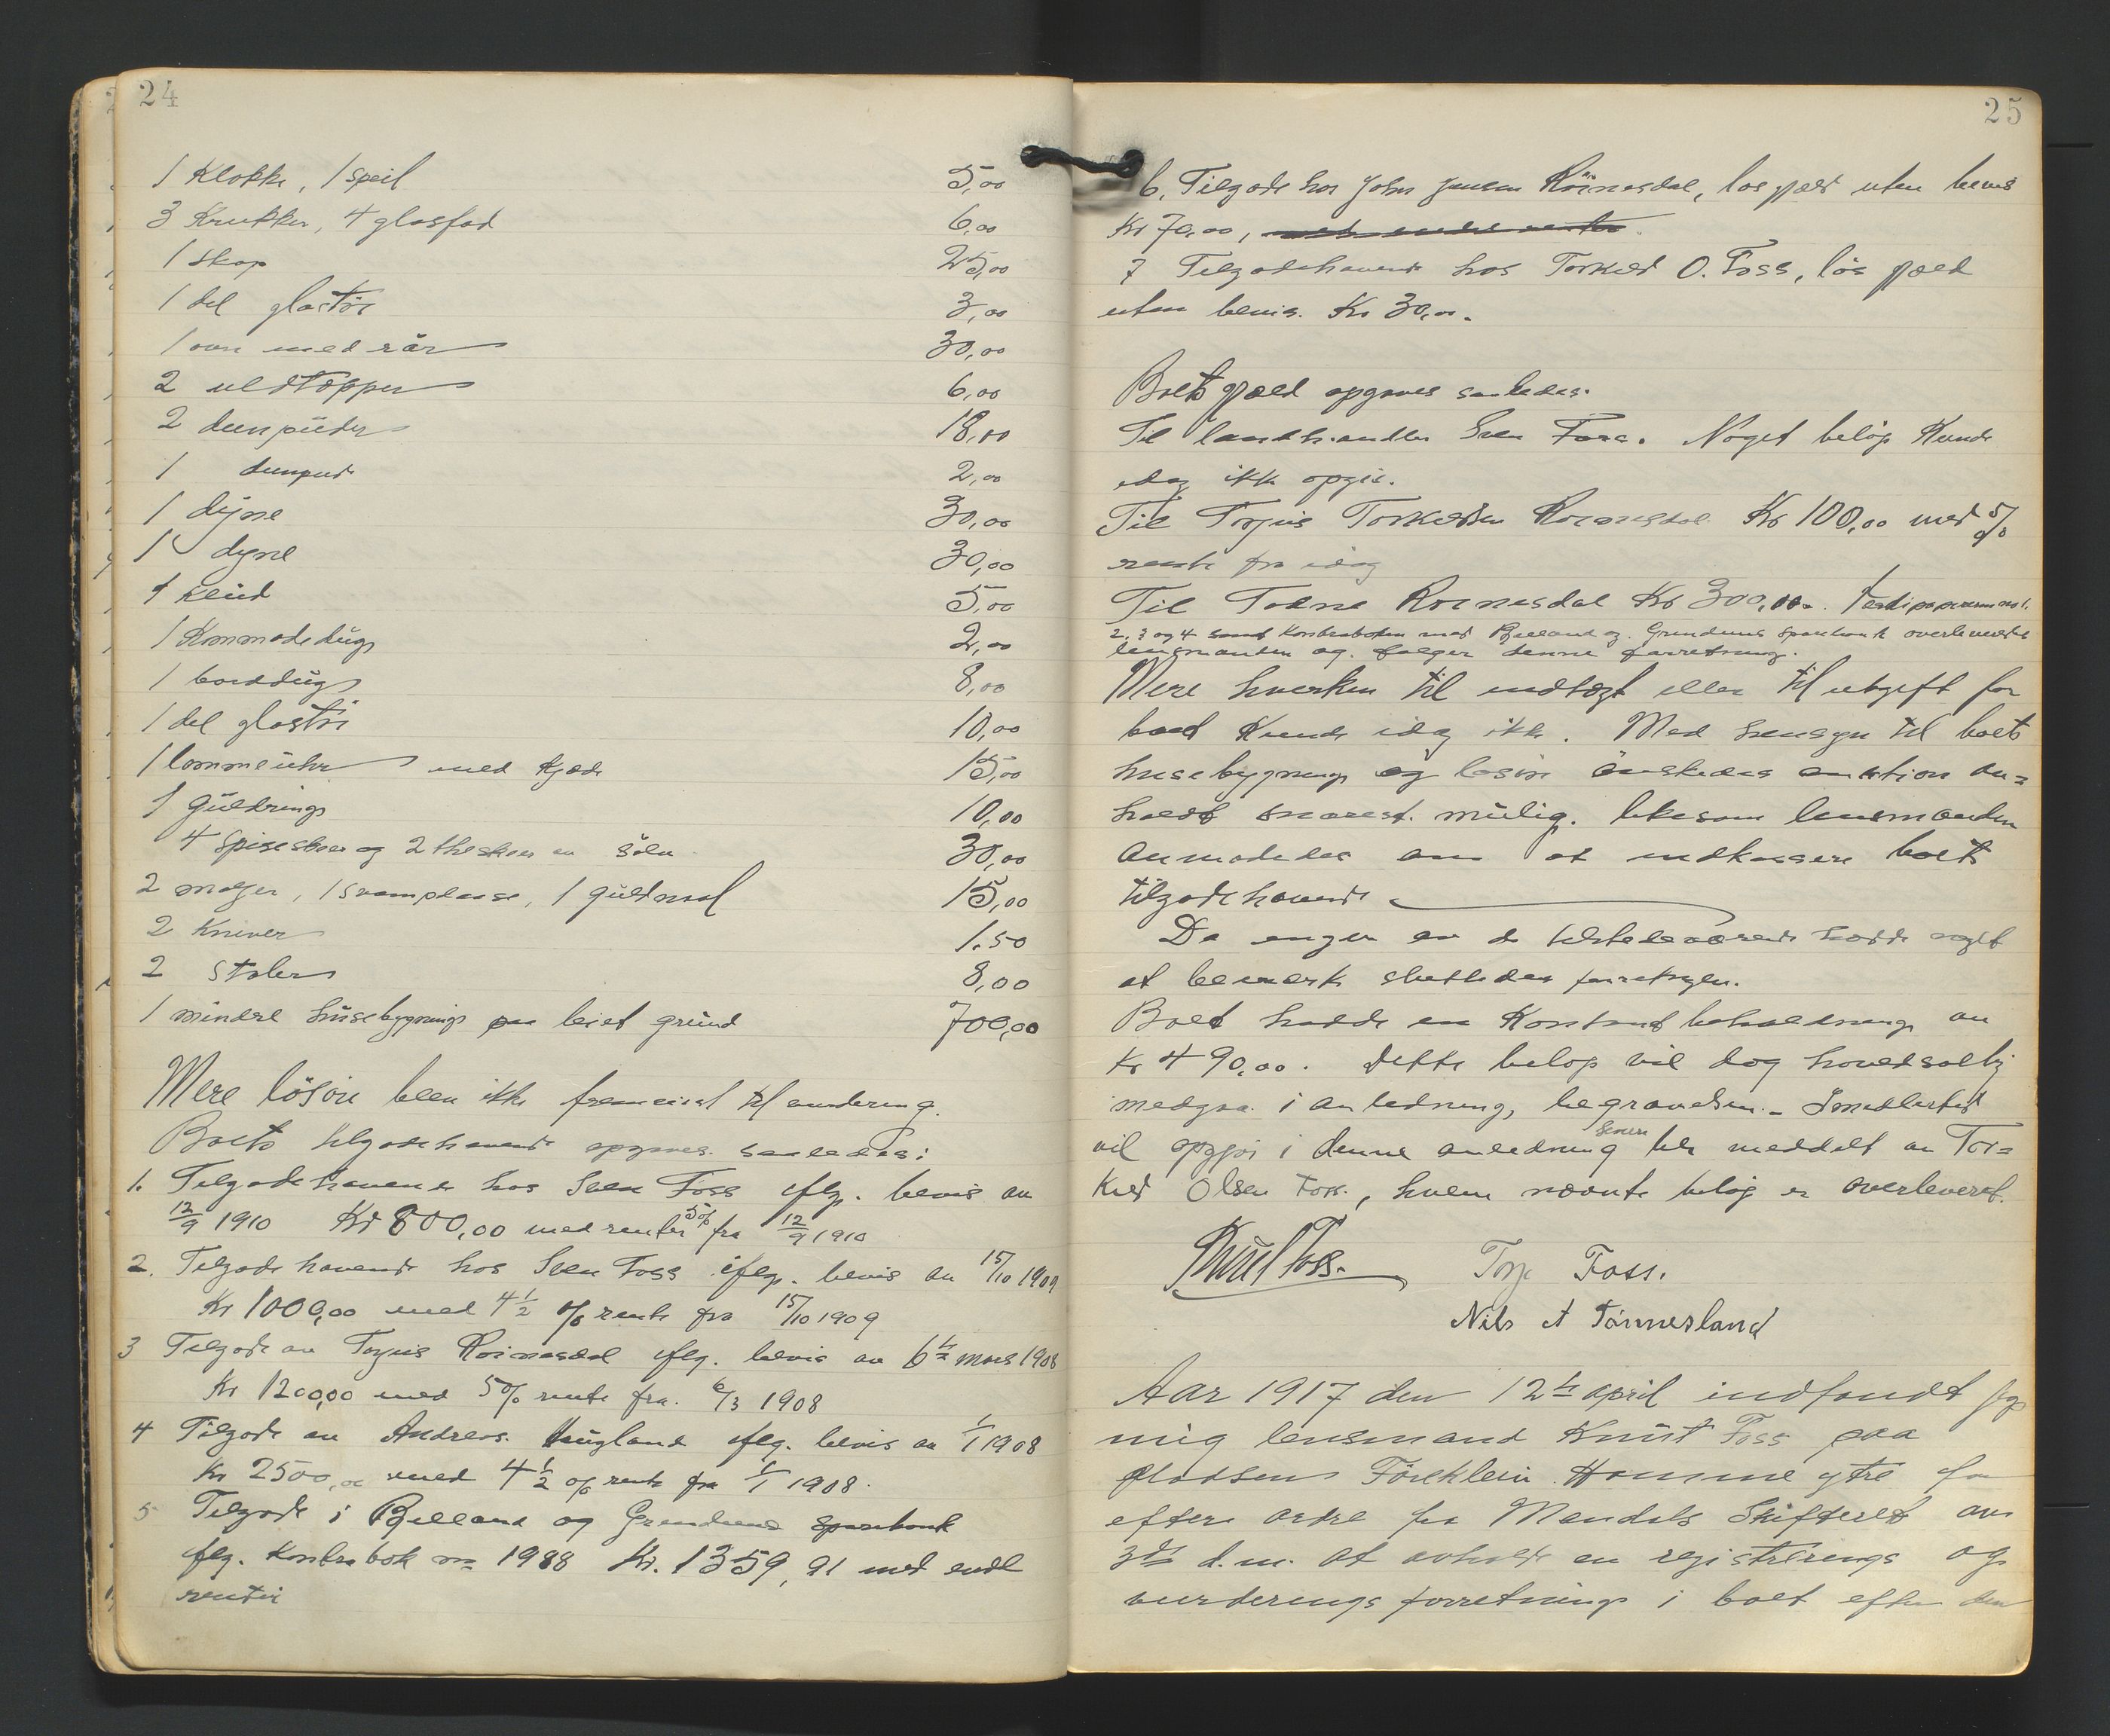 24
1 Klokke, 1 speil 5,00
3 Krukker, 4 glasfad 6,00
1 skap 25,00
1 del glastöi 3,00
1 ovn med rör 30,00
2 uldtæpper 6,00
2 dunpüder 18,00
1 dunpude 2,00
1 dyne 30,00
1 dyne 30,00
1 5,00
1 Kommodedüg 2,00
1 borddüg 8,00
1 del glastöi 10,00
1 lommeühr med kjæde 15,00
1 Güldring 10,00
4 spiseskeer og 2 theskeer av sölv 30,00
2 maljer, 1 güldnaal 15,00
2 Kniver 1.50
2 Stoler 8,00
1 mindre hüsebygning paa leiet gründ 700,00
Mere lösöre blev ikke fremvist til vurdering.
Boets tilgodehavende opgaves saaledes:
1. Tilgodehavende hos Sven Foss iflg. bevis av
12/9 1910 Kr 800,00 med renter 5% fra 12/9 1910
2. Tilgodehavende hos Sven Foss iflg. bevis av 15/10 1909
Kr 1000,00 med 4 1/2 % rente fra 15/10 1909
3 Tilgode av Torjus Roinesdal iflg. bevis av 6te mars 1908
Kr 1200,00 med 5% rente fra. 6/3 1908
4 Tilgode av Andreas Haugland iflg. bevis av 1/1 1908
Kr 2500,00 med 4 1/2 % rente fra 1/1 1908.
5 Tilgode i Bjelland og Grendums Sparebank
iflg. Kontrabok no 1988 Kr. 1359,91 med endl
renter
25
6. Tilgode hos John Jensen Röinesdal, los gjæld uten bevis
Kr 70,00,
7 Tilgodehavende hos Torkild O. Foss, lös gjæld
uten bevis. Kr 30,00.
Boets gjæld opgaves saaledes:
Til landhandler Sven Foss. Noget belöp Kunde
idag ikke opgis.
Til Torjus Torkildsen Roinesdal Kr 100,00 med 5%
rente fra idag
Til Tolene Roinesdal Kr 300,00. Værdipapirerne no 1.
2. 3 og 4 samt Kontraboken med Bjelland og Grendums Sparebank overleveredes
lensmanden og følger denne forretning.
Mere hverken til indtægt eller til utgift for
boet Kunde idag ikke. Med hensyn til boets
husebygning og lösöre önskedes auktion av=
holdt snarest mülig. likesom lensmanden
anmodedes om at indkassere boets
tilgodehavende
Da ingen av de tilstedeværende hadde noget
at bemerke sluttedes forretningen.
Boet hadde en Kontant beholdning av
Kr 490,00. Dette belöp vil dog hovedsaklig
medgaa i anledning begravelsen. Imidlertid
vil opgjör i denne anledning senere bli meddelt av Tor=
kild Olsen Foss., hvem nævnte belöp er overleveret.
Knut Foss. Torje Foss.
Nils A Tönnesland
Aar 1917 den 12te april indfandt jeg
mig lensmand Knüt Foss paa
pladsen Homme ytre for
efter ordre fra Mandals Skifteret av
3die d.m. at avholde en registrerings og
vurderings forretning i boet efter den